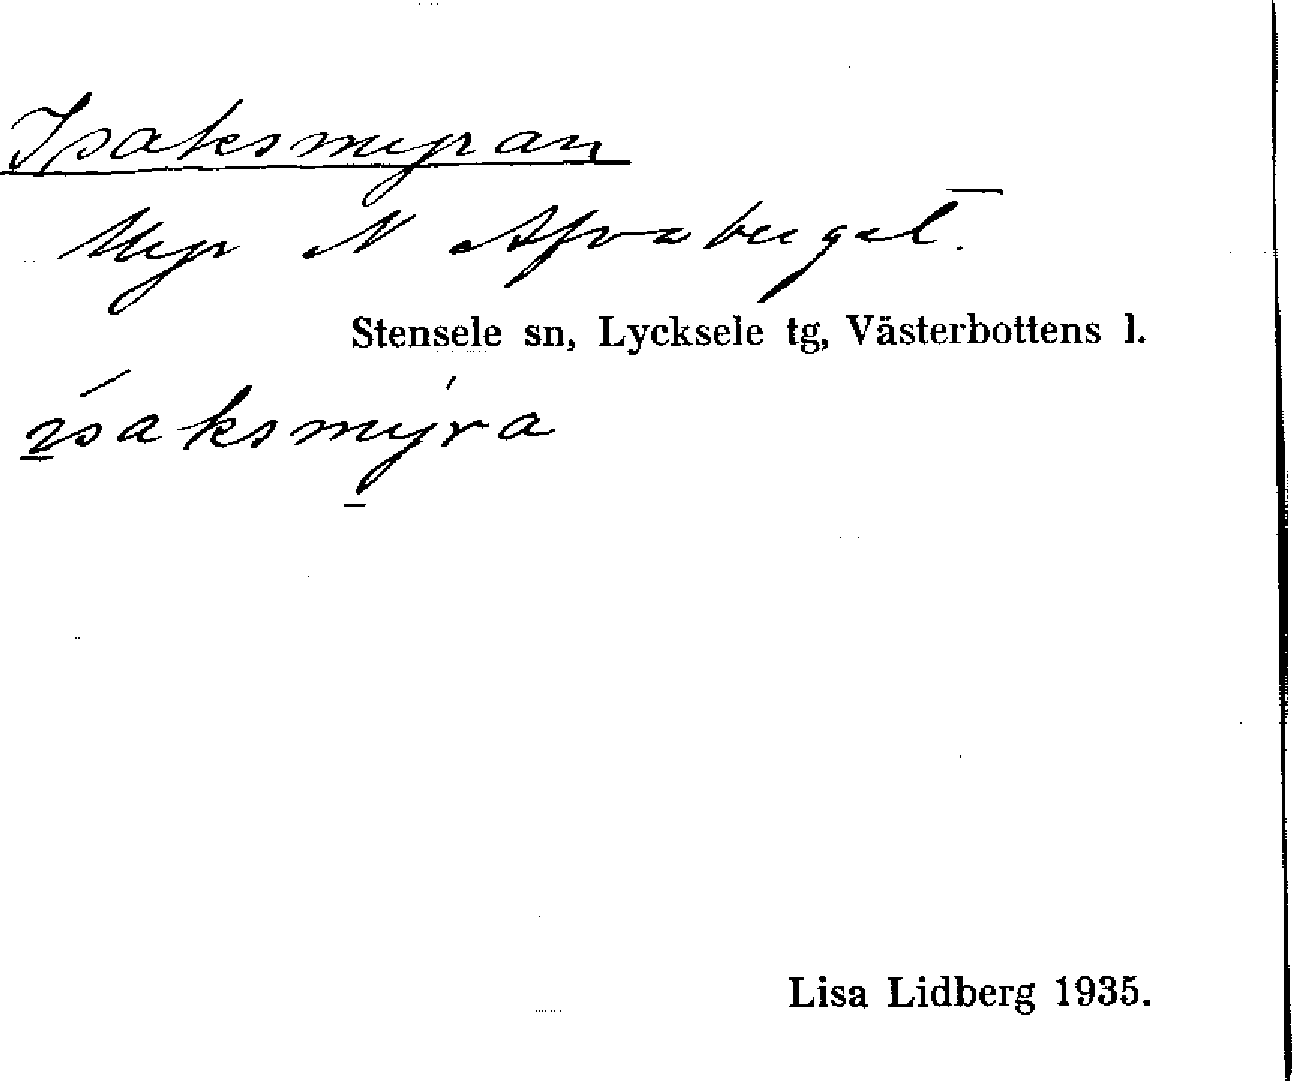 Isaksmyran
Myr N
Stensele sn, Lycksele tg, Västerbottens l.
ísaksmýra
Lisa Lidberg 1935.